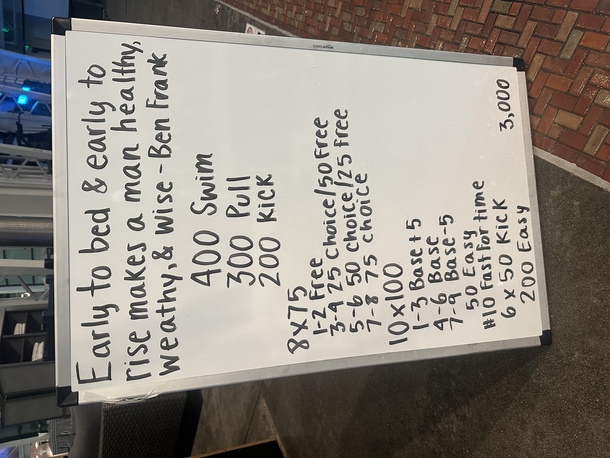 Early to bed & early to
rise makes a man healthy,
weathy, & wise - Ben Frank
400 Swim
300 Pull
200 Kick
8x75
1-2 Free
3-4 25 Choice/50 Free
5-6 50 choice/25 Free
7-8 75 choice
10x100
1-3 Base + 5
4-6 Base
7-9 Base-5
50 Easy
#10 Fast For time
6 x 50 Kick
200 Easy
3,000